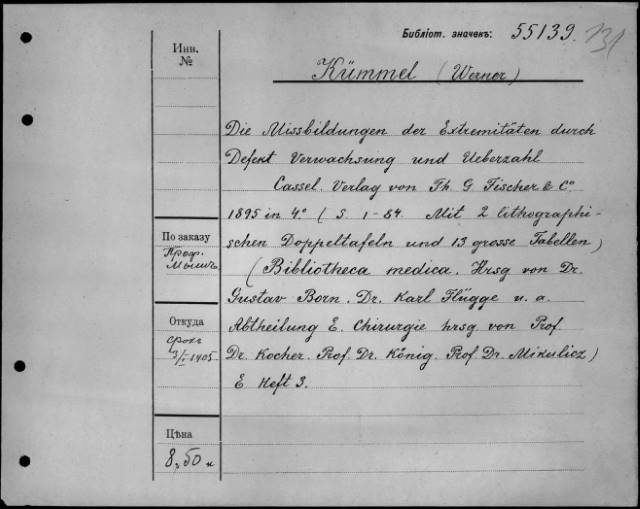 Библіот. значекъ: 55139.
Инв.
№
Kümmel (Werner)
Die Missbildungen der Extremitäten durch
Defekt Verwachsung und Ueberzahl
Cassel. Verlag von Th. G. Fischer & Cº
1895 in 4º (S. 1-84. Mit 2 lithographi-
schen Doppeltafeln und 13 grosse Tabellen)
(Bibliotheca medica. Hrsg von Dr.
Gustav Born. Dr. Karl Flügge u. a.
Abtheilung E. Chirurgie hrsg. von Prof.
Dr. Kocher. Prof. Dr. König. Prof Dr. Mikulicz)
E Heft 3.
По заказу
Проф.
Мышъ.
Откуда
3/I 1905
Цѣна
8,50